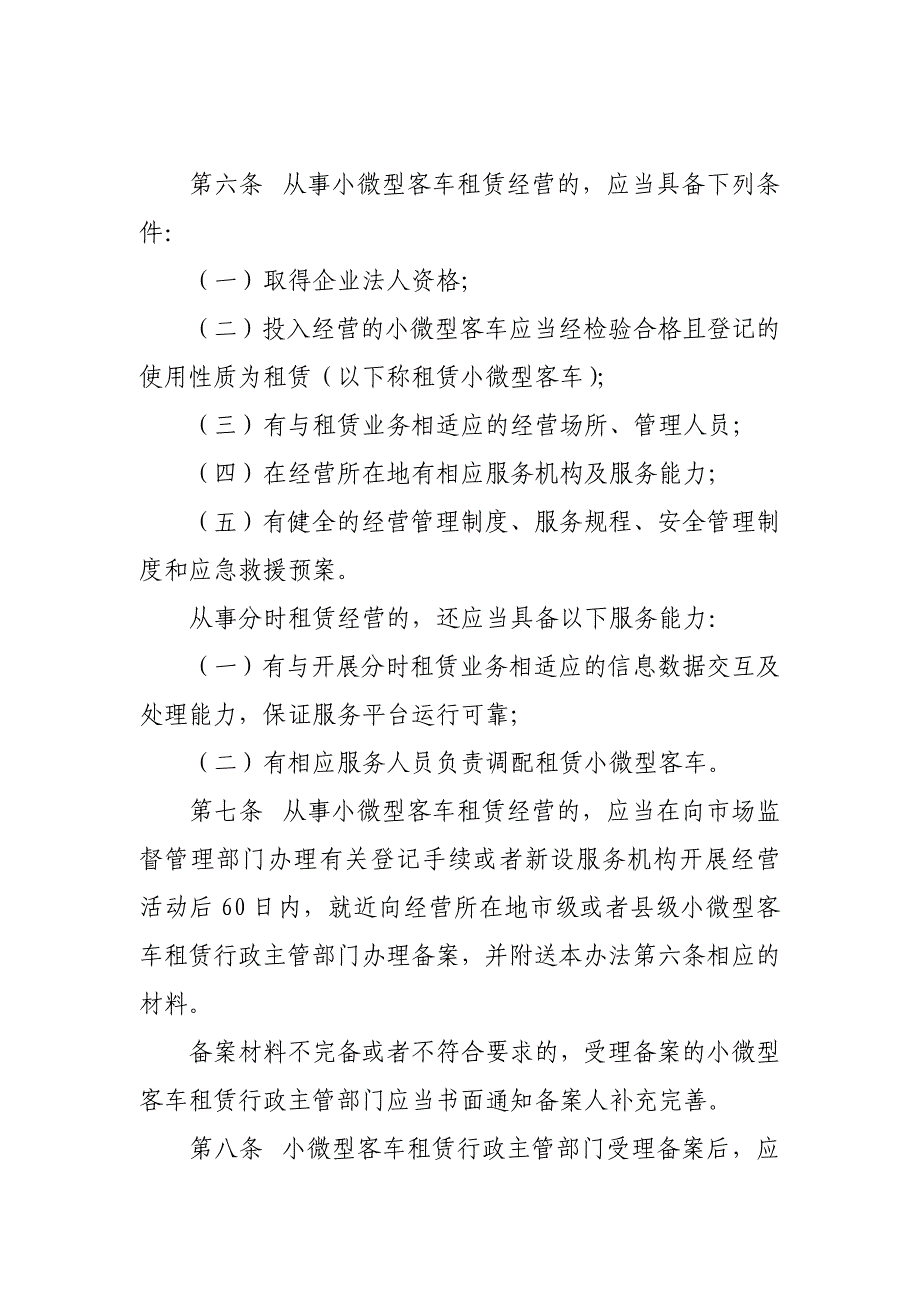 第六条 从事小微型客车租赁经营的，应当具备下列条
件：
（一）取得企业法人资格；
（二）投入经营的小微型客车应当经检验合格且登记的
使用性质为租赁（以下称租赁小微型客车）；
（三）有与租赁业务相适应的经营场所、管理人员；
（四）在经营所在地有相应服务机构及服务能力；
（五）有健全的经营管理制度、服务规程、安全管理制
度和应急救援预案。
从事分时租赁经营的，还应当具备以下服务能力：
（一）有与开展分时租赁业务相适应的信息数据交互及
处理能力，保证服务平台运行可靠；
（二）有相应服务人员负责调配租赁小微型客车。
第七条 从事小微型客车租赁经营的，应当在向市场监
督管理部门办理有关登记手续或者新设服务机构开展经营
活动后 60 日内，就近向经营所在地市级或者县级小微型客
车租赁行政主管部门办理备案，并附送本办法第六条相应的
材料。
备案材料不完备或者不符合要求的，受理备案的小微型
客车租赁行政主管部门应当书面通知备案人补充完善。
第八条 小微型客车租赁行政主管部门受理备案后，应